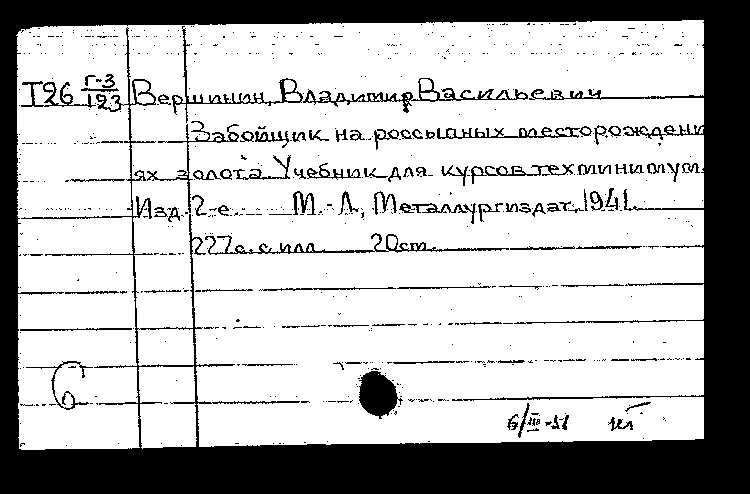 Т26 Г-3/123 Вершинин, Владимир Васильевич
Забойщик на россыпных месторождени
ях золота. Учебник для курсов техминимум.
Изд. 2-е. М.-Л., Металлургиздат, 1941.
227с. с илл. 20см.
6
6/III-51